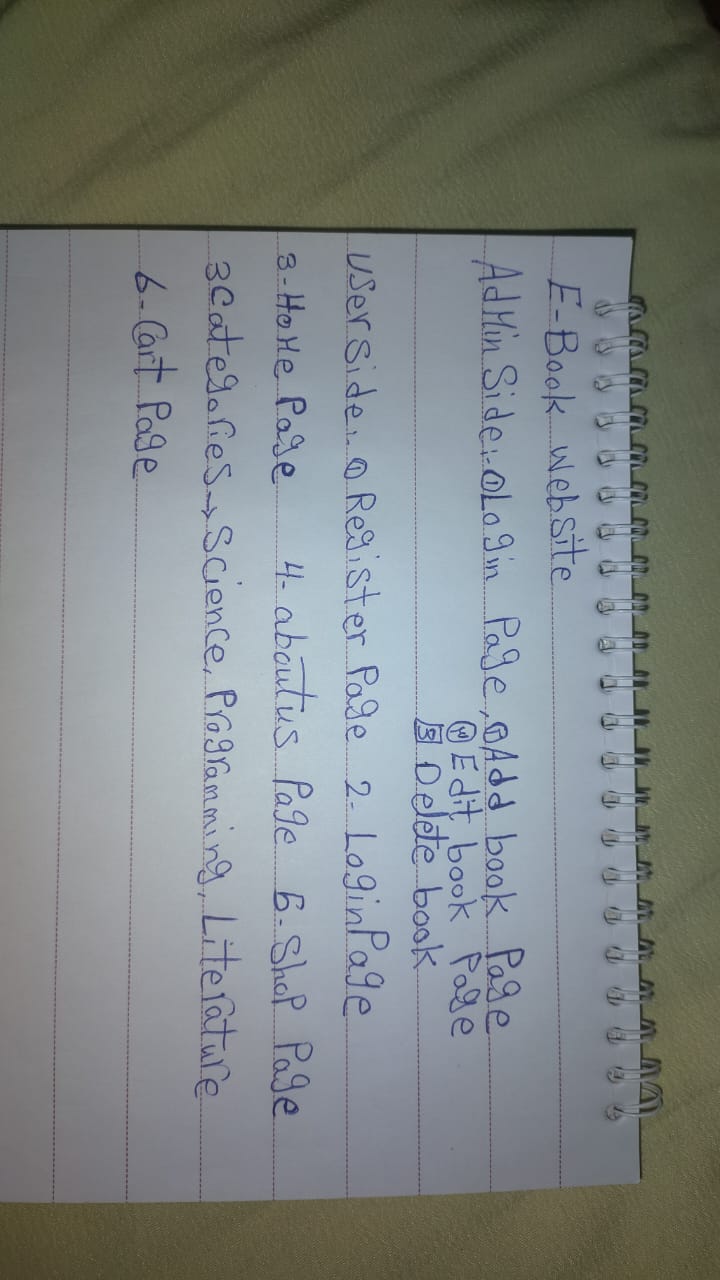 E-Book website
AdMin Side:- ① Login Page, ② Add book Page
③ Edit book Page
3 Delete book
User side:- ① Register Page 2- Login Page
3- HoMe Page 4- aboutus Page 5- Shop Page
3 Categories → Science, Programming, Literature
6- Cart Page